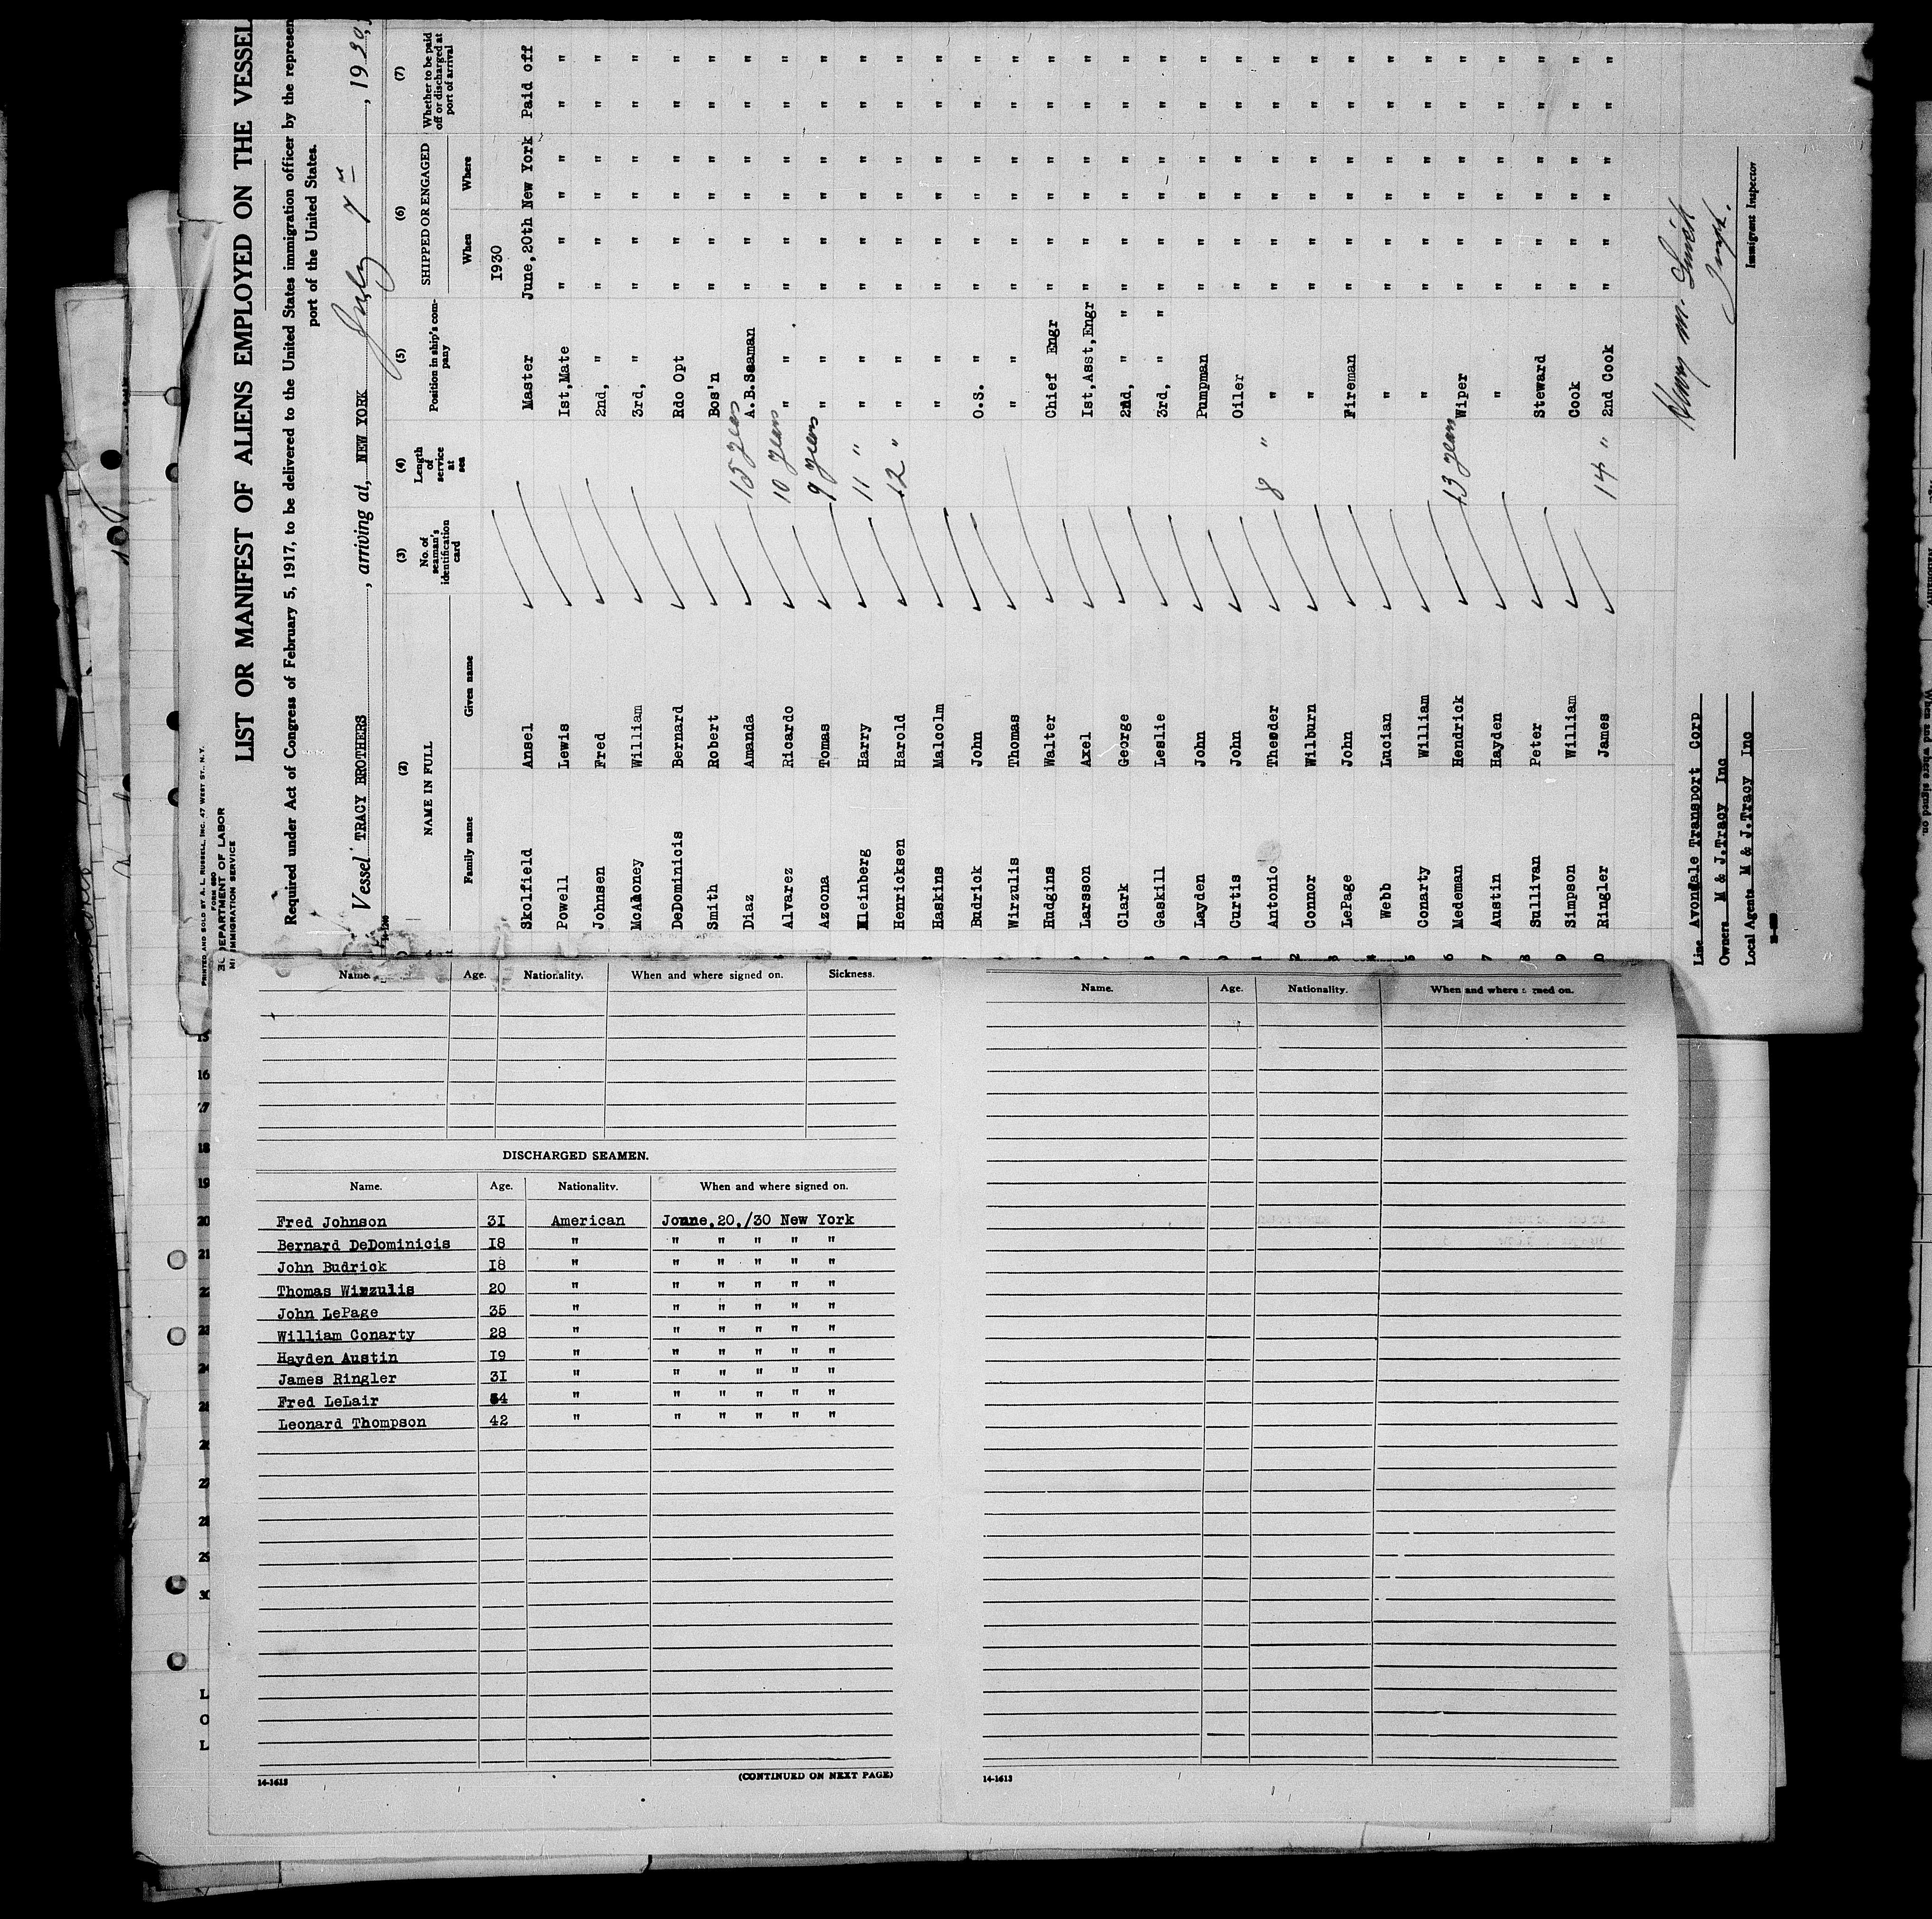 PRINTED AND SOLD BY A. L. RUSSELL, INC. 47 WEST ST., N.Y.
FORM 680
DEPARTMENT OF LABOR
IMMIGRATION SERVICE
LIST OR MANIFEST OF ALIENS EMPLOYED ON THE VESSEL
Required under Act of Congress of February 5, 1917, to be delivered to the United States immigration officer by the represen
port of the United States.
Vessel TRACY BROTHERS, arriving at, NEW YORK July 7, 1930,
(2) (3) (4) (5) (6) (7)
NAME IN FULL No. of seaman's identification card Length of service at sea Position in ship's company SHIPPED OR ENGAGED Whether to be paid off or discharged at port of arrival
Family name Given name When Where
1930
Skolfield Ansel Master June,20th New York Paid off
Powell Lewis Ist,Mate " " " " " "
Johnsen Fred 2nd, " " " " " " "
McAhoney William 3rd, " " " " " " "
DeDominicis Bernard Rdo Opt " " " " " "
Smith Robert Bos'n " " " " " "
Diaz Amanda 15 years A.B.Seaman " " " " " "
Alvarez Ricardo 10 years " " " " " " " "
Azcona Tomas 9 years " " " " " " " "
Kleinberg Harry 11 " " " " " " " " "
Henricksen Harold 12 " " " " " " " " "
Haskins Malcolm " " " " " " " "
Budrick John O.S. " " " " " " "
Wirzulis Thomas " " " " " " "
Hudgins Walter Chief Engr " " " " " "
Larsson Axel Ist,Asst,Engr " " " " " "
Clark George 2nd, " " " " " " " "
Gaskill Leslie 3rd, " " " " " " " "
Layden John Pumpman " " " " " "
Curtis John Oiler " " " " " "
Antonio Theoder 8 " " " " " " " "
Connor Wilburn " " " " " " "
LePage John Fireman " " " " " "
Webb Lucian " " " " " " "
Conarty William " " " " " " "
Medeman Hendrick 13 years Wiper " " " " " "
Austin Hayden " " " " " " "
Sullivan Peter Steward " " " " " "
Simpson William Cook " " " " " "
Ringler James 14 " 2nd Cook " " " " " "
Line Avondale Transport Corp
Owners M & J.Tracy Inc
Local Agents M & J.Tracy Inc
Immigrant Inspector
Name. Age. Nationality. When and where signed on. Sickness.
DISCHARGED SEAMEN.
Name. Age. Nationality. When and where signed on.
Fred Johnson 3I American Joune,20,/30 New York
Bernard DeDominicis I8 " " " " " "
John Budrick I8 " " " " " "
Thomas Wirzulis 20 " " " " " "
John LePage 35 " " " " " "
William Conarty 28 " " " " " "
Hayden Austin I9 " " " " " "
James Ringler 3I " " " " " "
Fred LeLair 54 " " " " " "
Leonard Thompson 42 " " " " " "
14-1613 (CONTINUED ON NEXT PAGE)
Name. Age. Nationality. When and where signed on.
14-1613
15
16
17
18
19
20
21
22
23
24
25
26
27
28
29
30